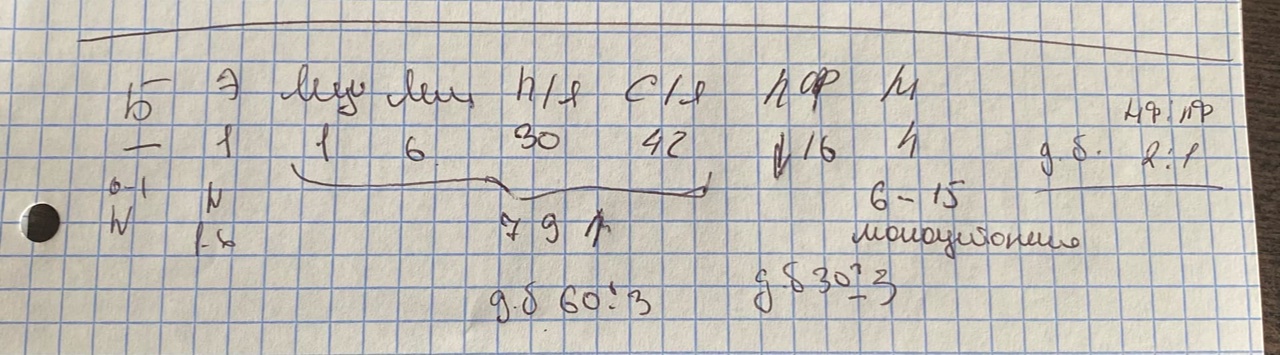 Б Э Миу Миц П/Я С/Я ЛФ М
— 1 1 6 30 42 ↓16 4
НФ:ЛФ
д.б. 2:1
0-1 N
N 1-5
79 ↑
6-15
моноцитопения
д.б 60±3
д.б 30±3